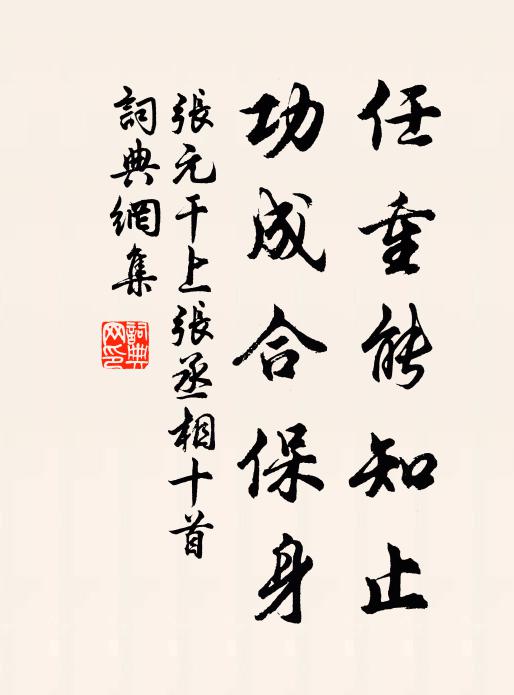 任重能知止
功成合保身
張元干上張丞相十首
詞典網集
詞典網印